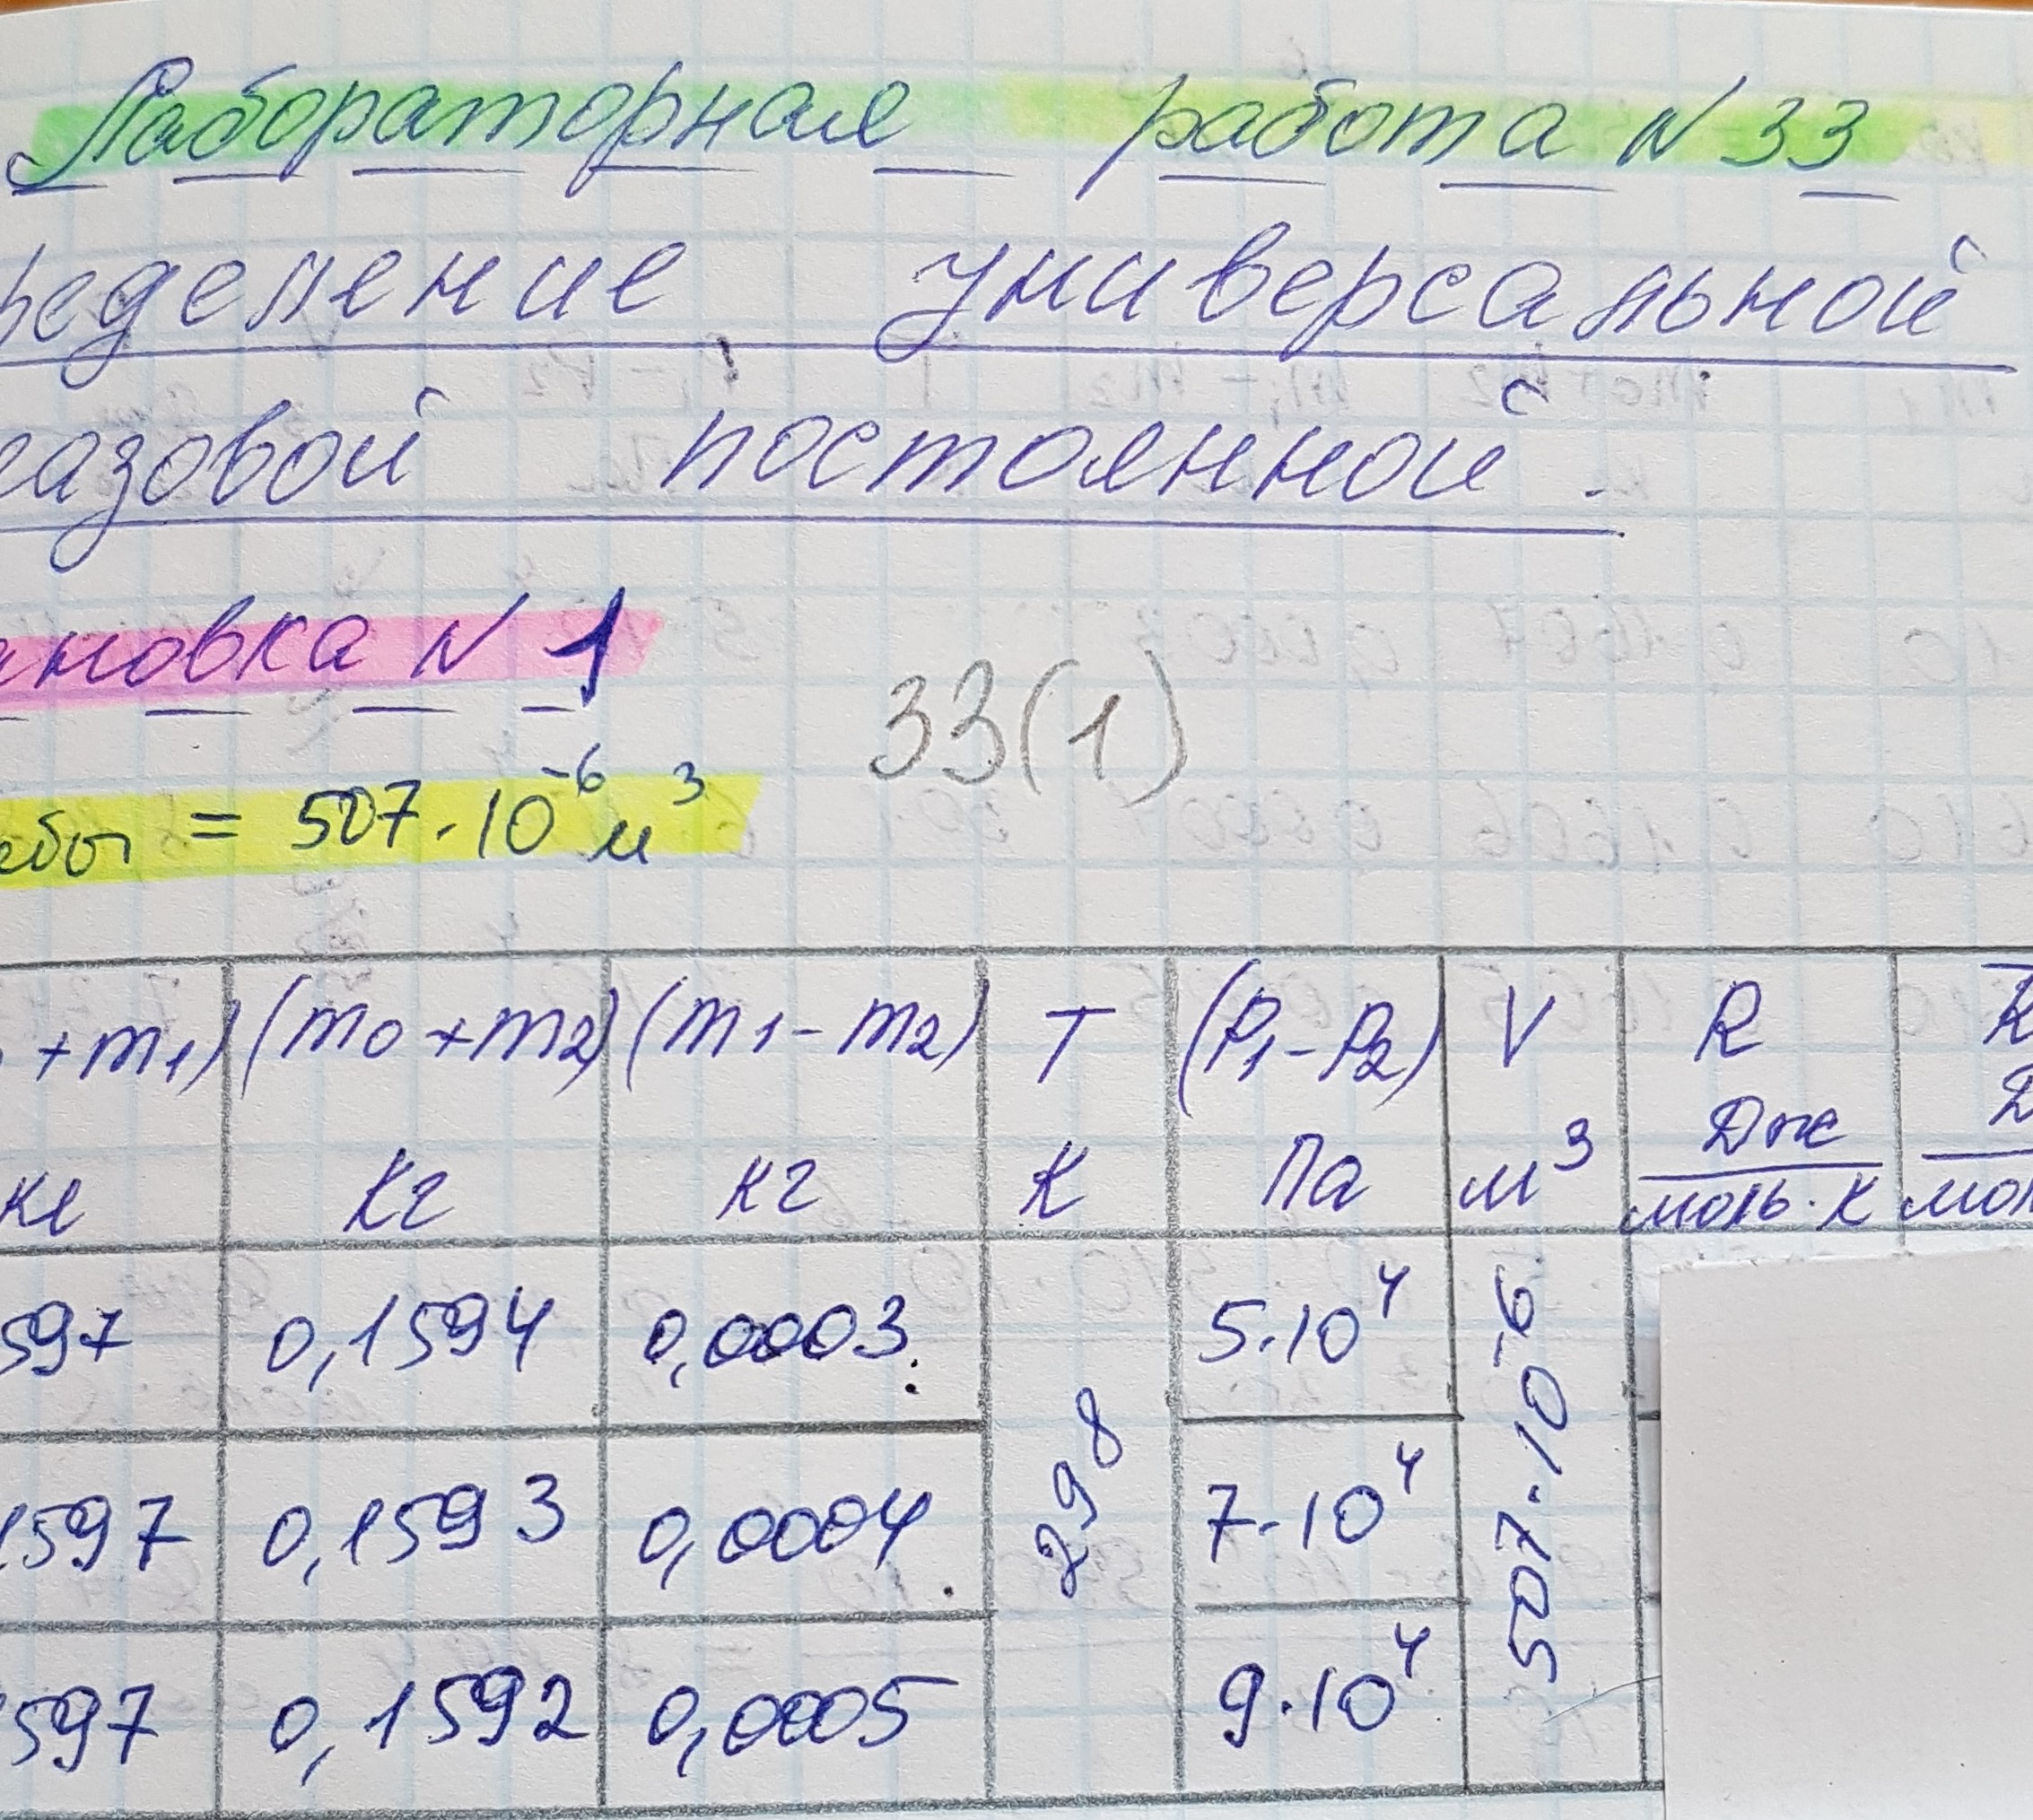 Лабораторная работа N 33
ределение универсальной
газовой постоянной.
ановка N 1
33(1)
ебы = 507·10⁻⁶ м³
+m₁) (m₀+m₂) (m₁-m₂) T (P₁-P₂) V R
кг кг кг К Па м³ Дж/моль·К мол
597 0,1594 0,0003 298 5·10⁴ 507·10⁻⁶
1597 0,1593 0,0004 7·10⁴
597 0,1592 0,0005 9·10⁴